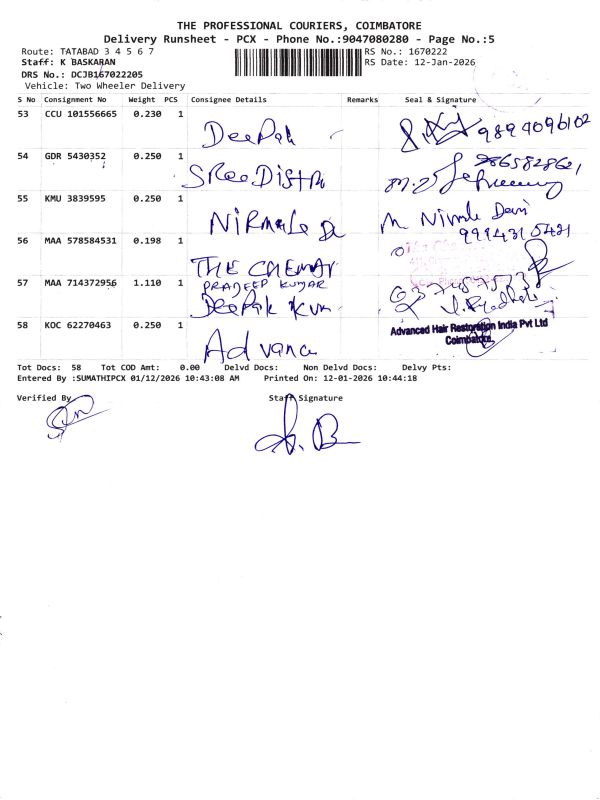 THE PROFESSIONAL COURIERS, COIMBATORE
Delivery Runsheet - PCX - Phone No.:9047080280 - Page No.:5
Route: TATABAD 3 4 5 6 7
RS No.: 1670222
Staff: K BASKARAN
RS Date: 12-Jan-2026
DRS No.: DCJB167022205
Vehicle: Two Wheeler Delivery
S No Consignment No Weight PCS Consignee Details Remarks Seal & Signature
53 CCU 101556665 0.230 1 Deepak 9899096102
54 GDR 5430352 0.250 1 SRee Distri 9865828621
55 KMU 3839595 0.250 1 Nirmale De M Nirmla Devi
9994315421
56 MAA 578584531 0.198 1 THE CHEMAR
57 MAA 714372956 1.110 1 PRADEEP KUMAR
Deepak Kum
58 KOC 62270463 0.250 1 Advanc Advanced Hair Restoration India Pvt Ltd
Coimbatore.
Tot Docs: 58 Tot COD Amt: 0.00 Delvd Docs: Non Delvd Docs: Delvy Pts:
Entered By :SUMATHIPCX 01/12/2026 10:43:08 AM Printed On: 12-01-2026 10:44:18
Verified By Staff Signature